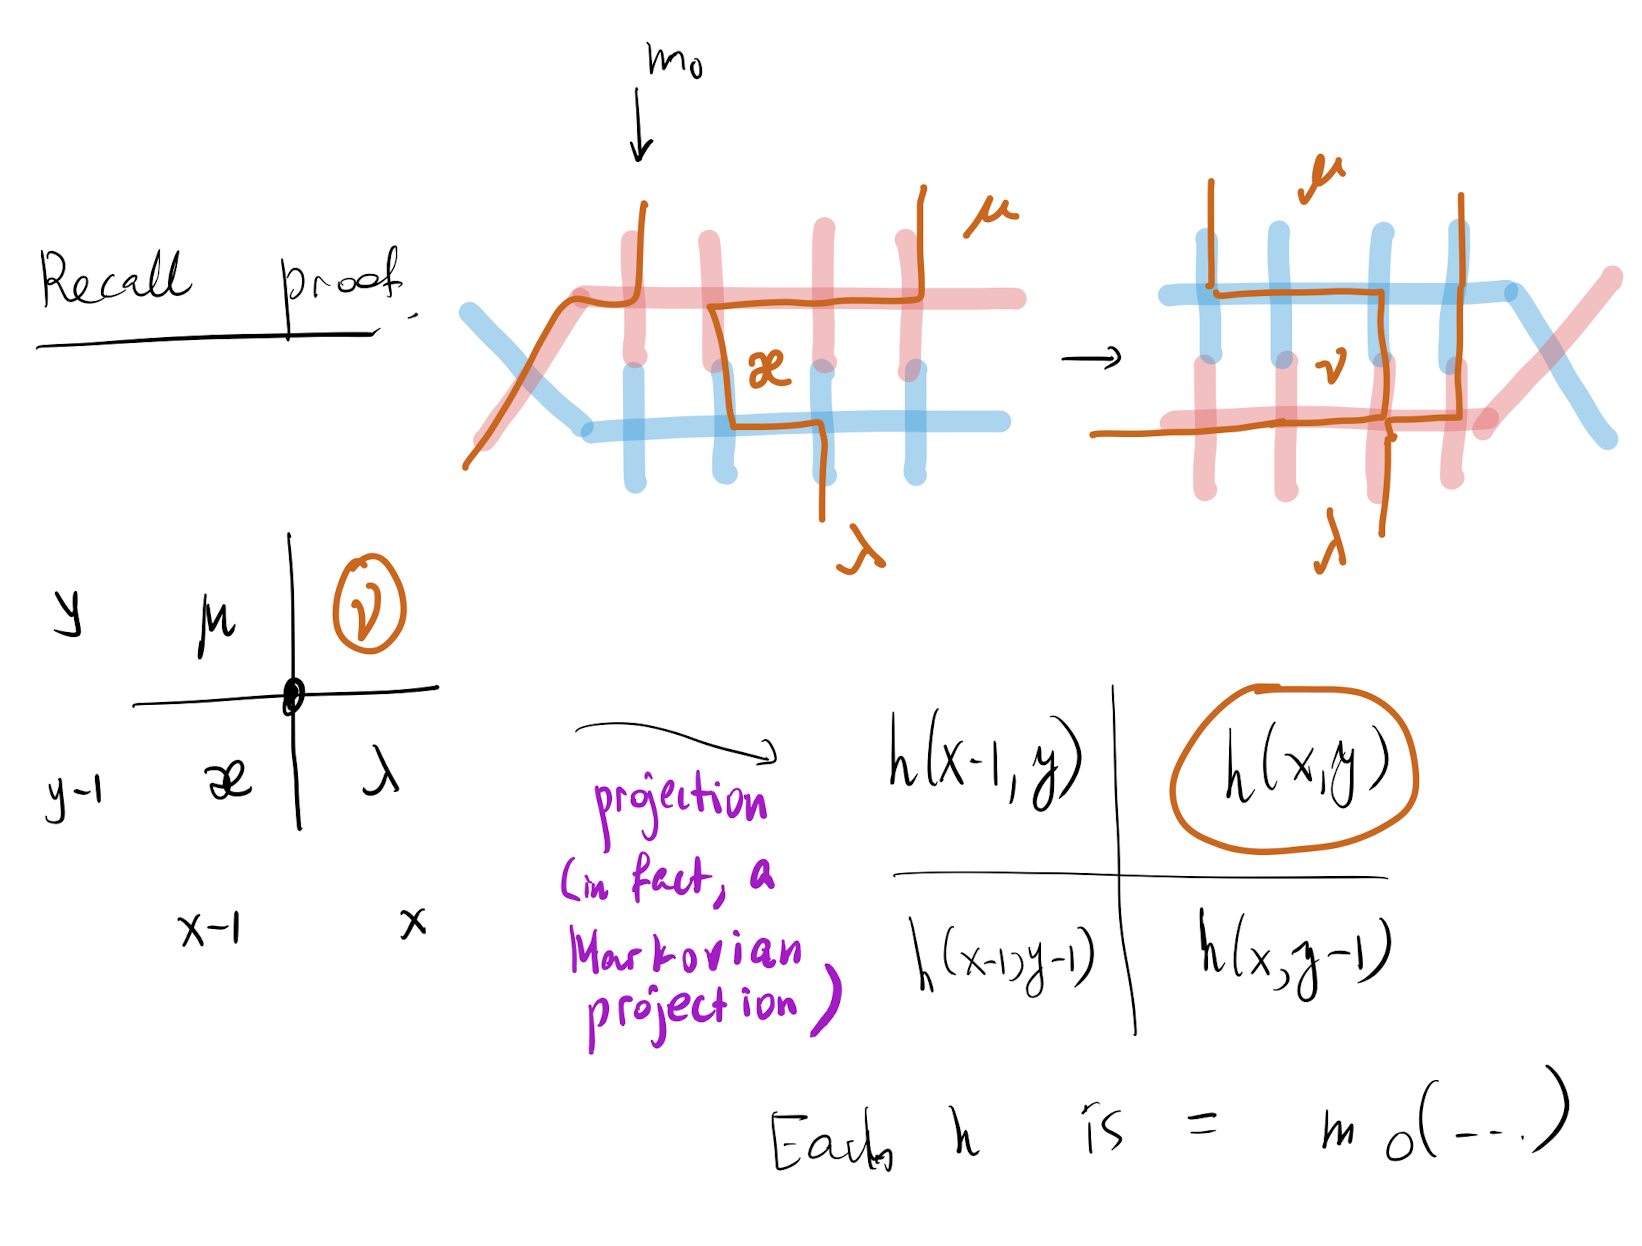 m₀
μ
μ
Recall proof.
æ
ν
λ
λ
y μ ν
y-1 æ λ
x-1 x
projection
(in fact, a
Markovian
projection)
h(x-1, y) h(x,y)
h(x-1,y-1) h(x,y-1)
Each h is = m₀(---.)